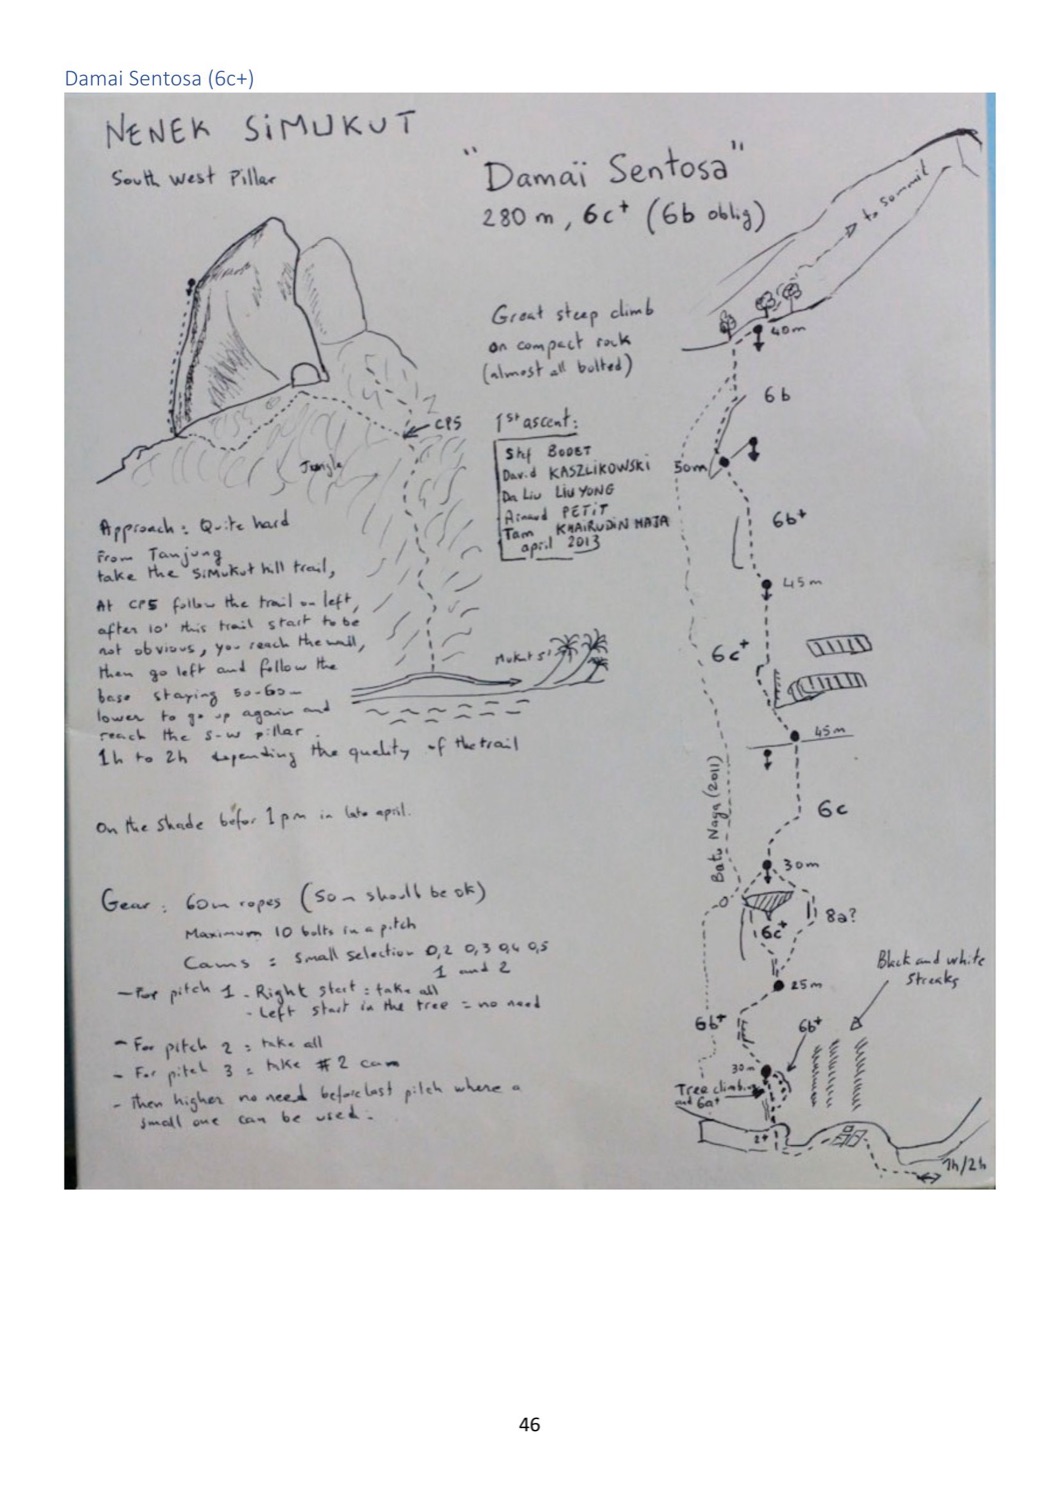 Damai Sentosa (6c+)
NENEK SiMUKUT
South West Pillar
"Damaï Sentosa"
280 m, 6c+ (6b oblig)
to summit
Great steep climb
on compact rock
(almost all bolted)
40m
6b
CP5
Jungle
1st ascent:
Stef BODET
David KASZLIKOWSKI
Da Liu LIU YONG
Arnaud PETIT
Tam KHAIRUDIN HAJA
april 2013
50m
6b+
45m
Approach: Quite hard
From Tanjung
take the SiMuKut hill trail,
At CP5 follow the trail on left,
after 10' this trail start to be
not obvious, you reach the wall,
then go left and follow the
base staying 50-60m
lower to go up again and
reach the S-W pillar.
1h to 2h depending the quality of the trail
Mukut
6c+
45m
Batu Naga (2011)
6c
30m
On the shade befor 1pm in late april.
Gear: 60m ropes (50m should be ok)
Maximum 10 bolts in a pitch
Cams = small selection 0,2 0,3 0,4 0,5
1 and 2
- For pitch 1 - Right start: take all
- Left start in the tree = no need
- For pitch 2 = take all
- For pitch 3 = take #2 cam
- then higher no need before last pitch where a
small one can be used.
6c+
8a?
Black and white
Streaks
25m
6b+
6b+
30m
Tree climbing
and 6a+
2+
1h/2h
46